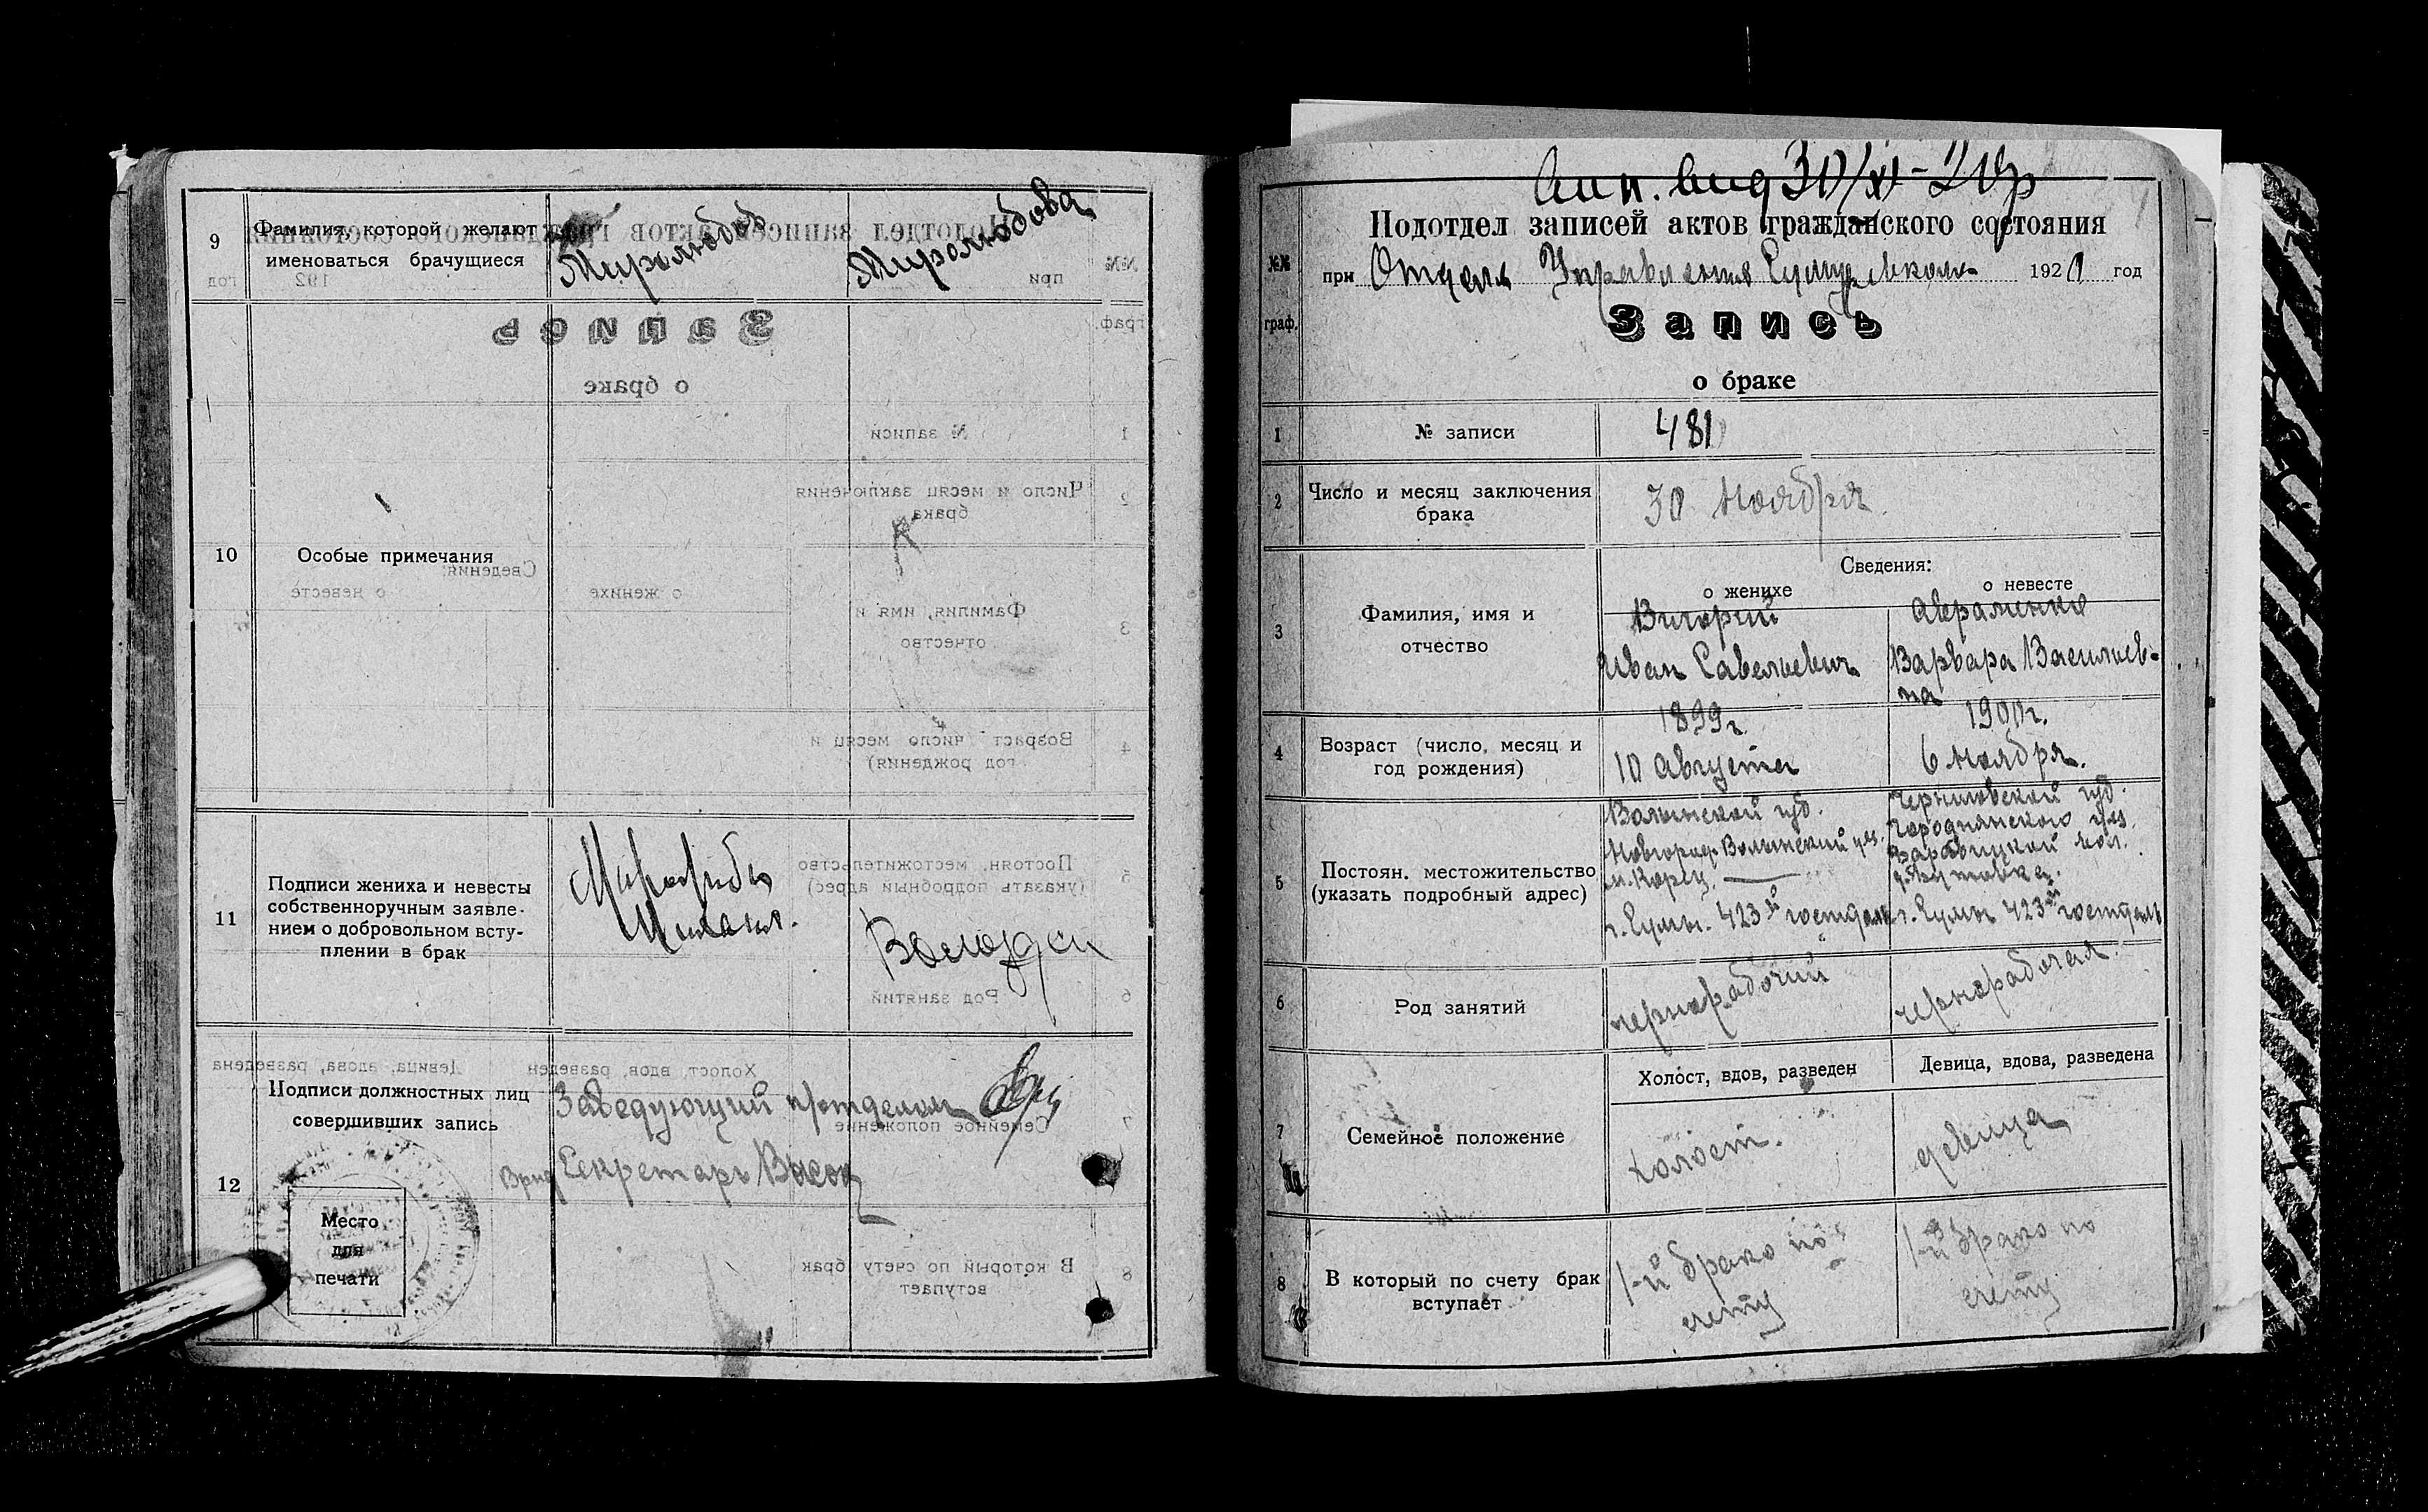 9
Фамилия, которой желают
именоваться брачущиеся
Миролюбов
Миролюбова
10
Особые примечания
11
Подписи жениха и невесты
собственноручным заявле-
нием о добровольном всту-
плении в брак
12
Подписи должностных лиц
совершивших запись
Заведующий п/отделом
Врид Секретарь
Место
для
печати
30/XI-20г
Подотдел записей актов гражданского состояния
№№
граф.
при Отделе Управления 1920 год
Запись
о браке
1
№ записи
481
2
Число и месяц заключения
брака
30 Ноября
3
Фамилия, имя и
отчество
Сведения:
о женихе
о невесте
Авраменко
Иван Савельевич
Варвара Васильев-
на
4
Возраст (число, месяц и
год рождения)
1899г.
10 Августа
1900г.
6 Ноября.
5
Постоян. местожительство
(указать подробный адрес)
Волынской губ.
Новоград-Волынский уез.
м. Корец.
г. Сумы. 423й госпиталь
Черниговской губ.
Городнянского уез.
вол.
г. Сумы 423й госпиталь
6
Род занятий
чернорабочий
чернорабочая.
7
Семейное положение
Холост, вдов, разведен
Девица, вдова, разведена
холост.
девица
8
В который по счету брак
вступает
1-й брак по
счету
1-й брак по
счету